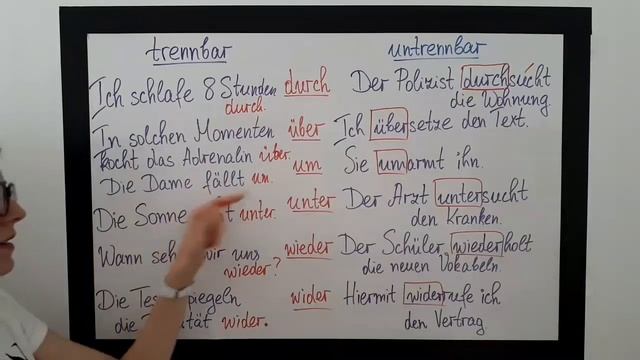 trennbar
untrennbar
Ich schlafe 8 Stunden
durch.
durch
Der Polizist durchsucht
die Wohnung.
In solchen Momenten
kocht das Adrenalin über.
über
Ich übersetze den Text.
Die Dame fällt um.
um
Sie umarmt ihn.
Die Sonne unter.
unter
Der Arzt untersucht
den Kranken.
Wann wir uns
wieder?
wieder
Der Schüler wiederholt
die neuen Vokabeln.
Die
die wider.
wider
Hiermit widerrufe ich
den Vertrag.